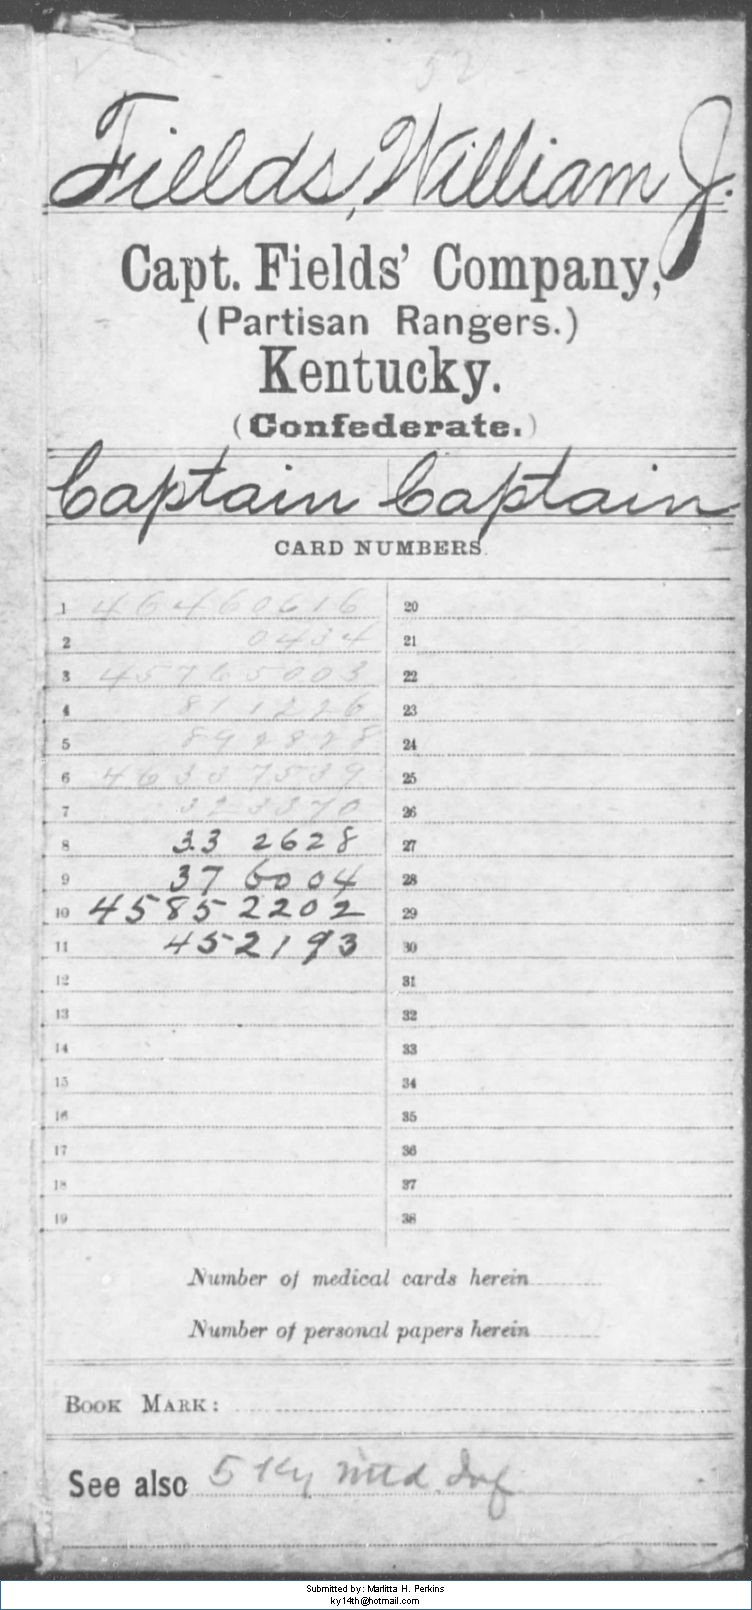 52
Fields, William J.
Capt. Fields' Company,
(Partisan Rangers.)
Kentucky.
(Confederate.)
Captain Captain
CARD NUMBERS.
1 46460616 20
2 0434 21
3 45765003 22
4 811226 23
5 892828 24
6 46337539 25
7 323370 26
8 33 2628 27
9 37 6004 28
10 45852202 29
11 452193 30
12 31
13 32
14 33
15 34
16 35
17 36
18 37
19 38
Number of medical cards herein
Number of personal papers herein
BOOK MARK:
See also 5 Ky Mtd. Inf
Submitted by: Marlitta H. Perkins
ky14th@hotmail.com